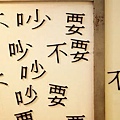 不吵要
吵不要
吵
不吵要
要